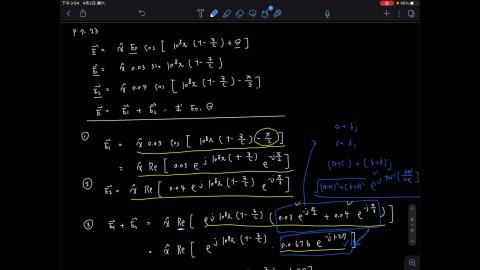 下午3:54 4月2日 週六
45%
P 7.23
E = x̂ E₀ cos [ 10⁸π (t - z/c) + θ ]
E₁ = x̂ 0.03 sin 10⁸π (t - z/c)
E₂ = x̂ 0.04 cos [ 10⁸π (t - z/c) - π/3 ]
E = E₁ + E₂ , 求 E₀, θ
① E₁ = x̂ 0.03 cos [ 10⁸π (t - z/c) - π/2 ]
= x̂ Re [ 0.03 e^{j 10⁸π (t - z/c)} e^{-j π/2} ]
② E₂ = x̂ Re [ 0.04 e^{j 10⁸π (t - z/c)} e^{-j π/3} ]
③ E₁ + E₂ = x̂ Re [ e^{j 10⁸π (t - z/c)} ( 0.03 e^{-j π/2} + 0.04 e^{-j π/3} ) ]
= x̂ Re [ e^{j 10⁸π (t - z/c)} · 0.0676 e^{-j 1.27} ]
(a+c) + (b+d) j